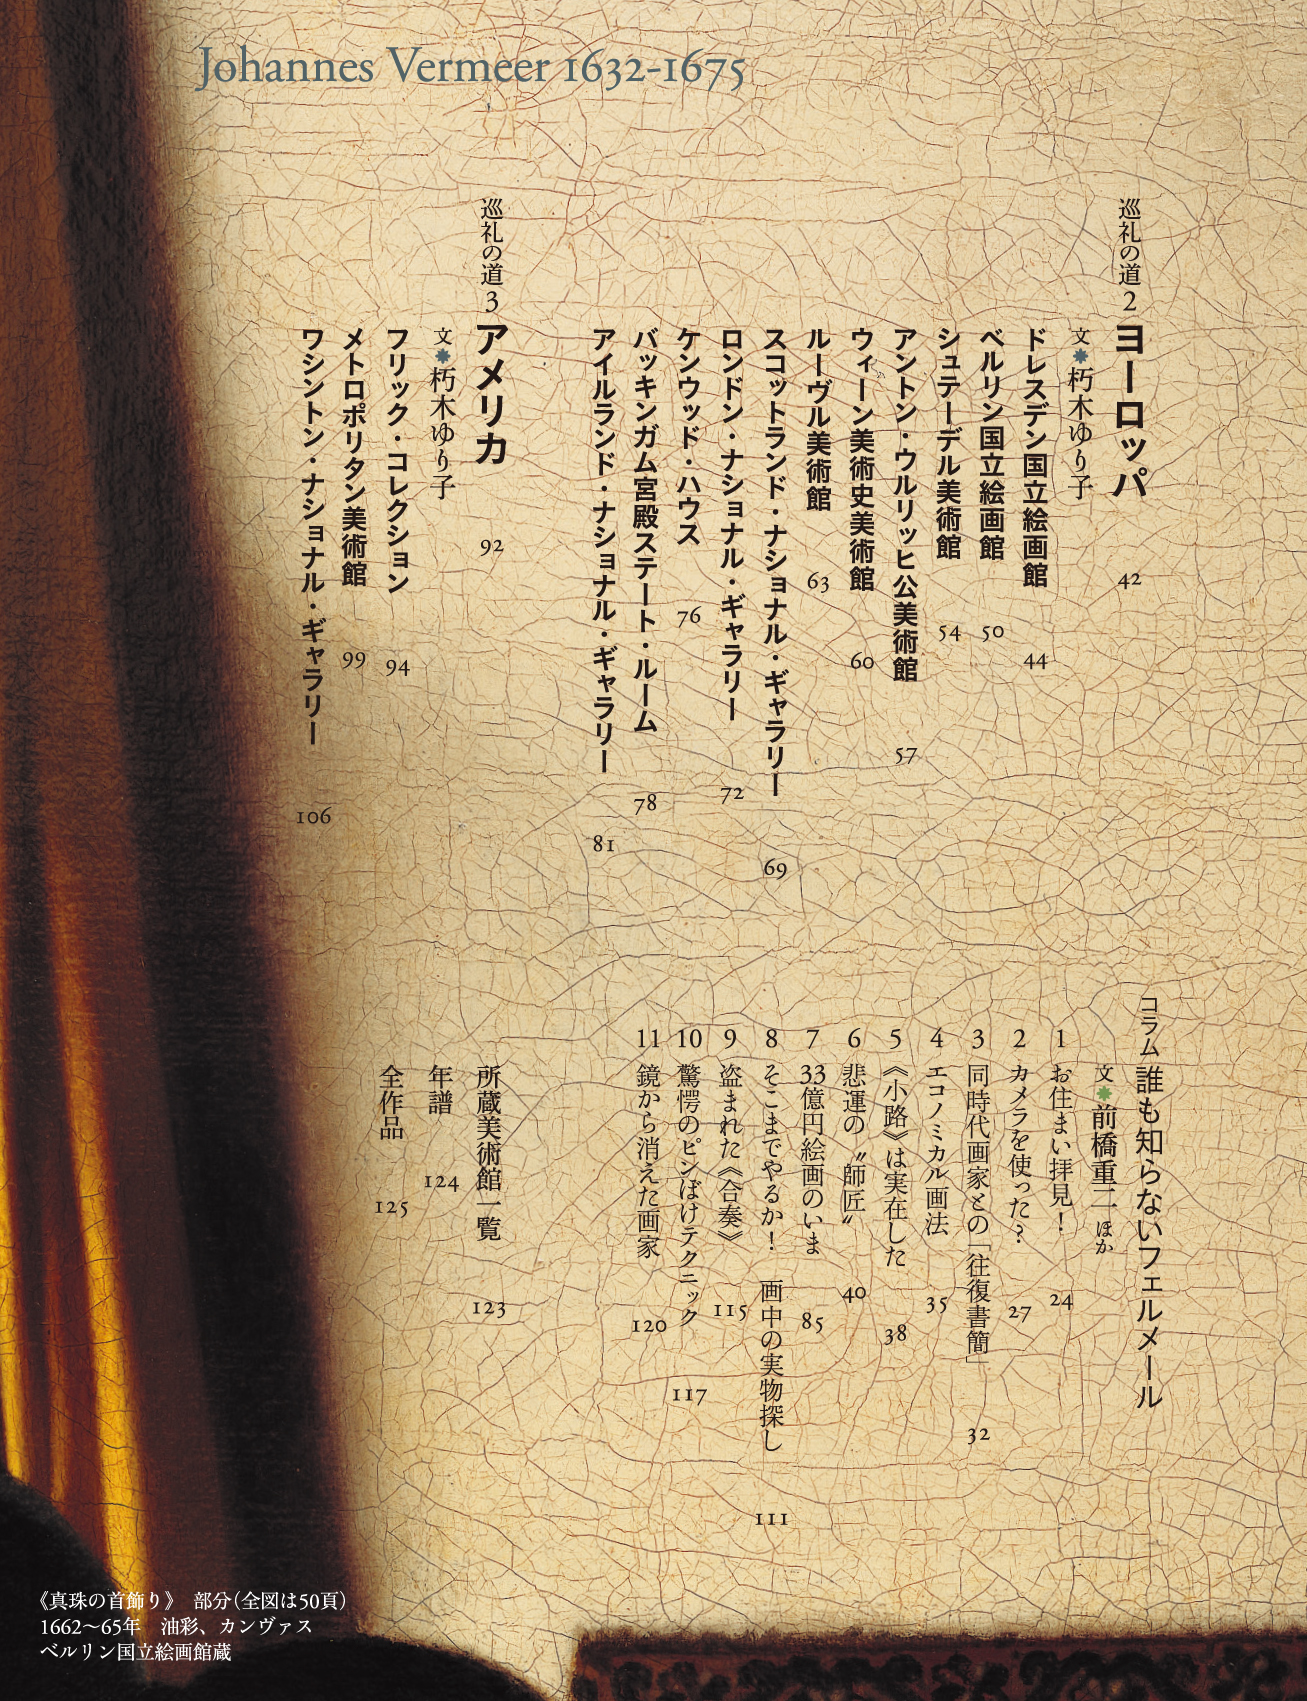 Johannes Vermeer 1632-1675
巡礼の道2 ヨーロッパ 42
文✸朽木ゆり子
ドレスデン国立絵画館 44
ベルリン国立絵画館 50
シュテーデル美術館 54
アントン・ウルリッヒ公美術館 57
ウィーン美術史美術館 60
ルーヴル美術館 63
スコットランド・ナショナル・ギャラリー 69
ロンドン・ナショナル・ギャラリー 72
ケンウッド・ハウス 76
バッキンガム宮殿ステート・ルーム 78
アイルランド・ナショナル・ギャラリー 81
巡礼の道3 アメリカ 92
文✸朽木ゆり子
フリック・コレクション 94
メトロポリタン美術館 99
ワシントン・ナショナル・ギャラリー 106
コラム 誰も知らないフェルメール
文✸前橋重二 ほか
1 お住まい拝見! 24
2 カメラを使った? 27
3 同時代画家との「往復書簡」 32
4 エコノミカル画法 35
5 《小路》は実在した 38
6 悲運の〝師匠〟 40
7 33億円絵画のいま 85
8 そこまでやるか! 画中の実物探し 111
9 盗まれた《合奏》 115
10 驚愕のピンぼけテクニック 117
11 鏡から消えた画家 120
所蔵美術館一覧 123
年譜 124
全作品 125
《真珠の首飾り》 部分(全図は50頁)
1662〜65年 油彩、カンヴァス
ベルリン国立絵画館蔵